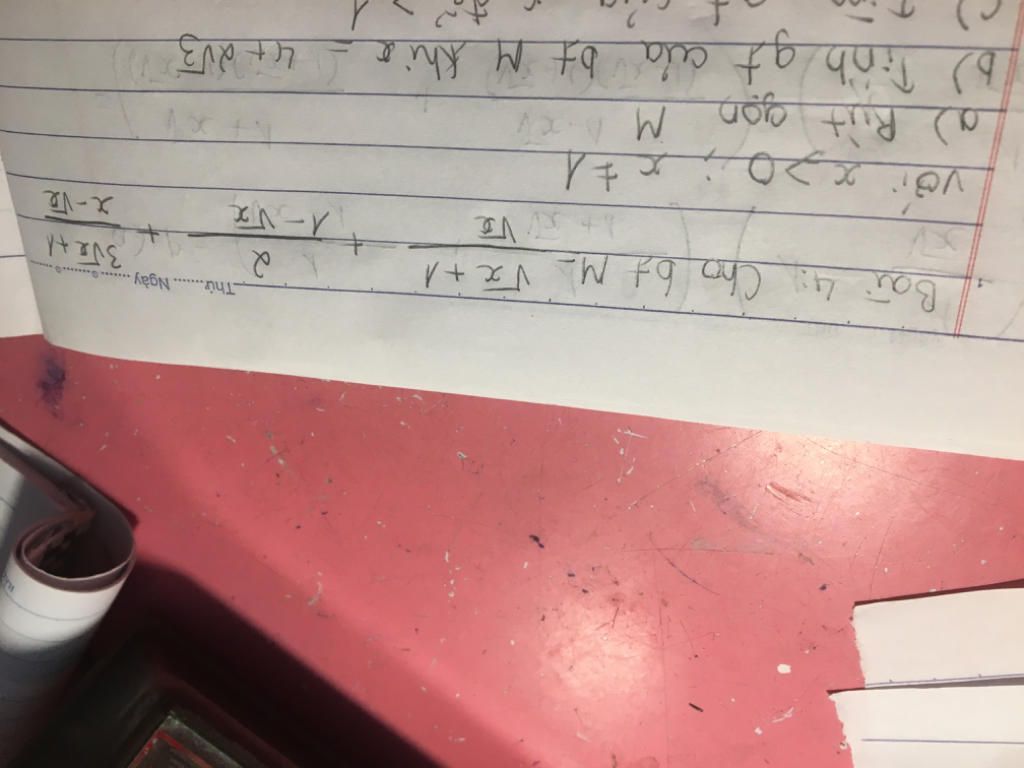 Thứ......... Ngày
Bài 4: Cho bt M = \frac{\sqrt{x}+1}{\sqrt{x}} + \frac{2}{1-\sqrt{x}} + \frac{3\sqrt{x}+1}{x-\sqrt{x}}
với x > 0 ; x ≠ 1
a) Rút gọn M
b) Tính gt của bt M khi x = 4+2√3
c)